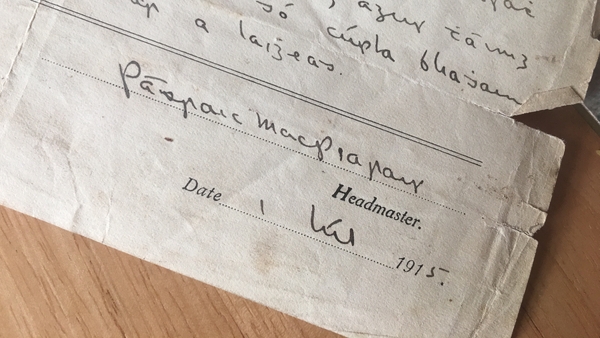 , agus táim
só cúpla bhasam
a laiġeas.
Pádraic MacPiarais
Headmaster.
Date 1 Iúl 1915.